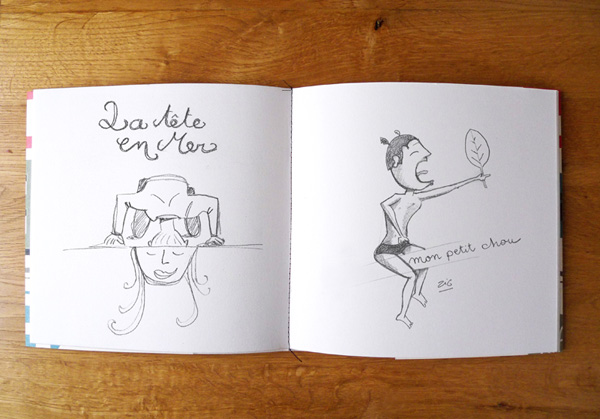 La tête
en Mer
mon petit chou
ZiG